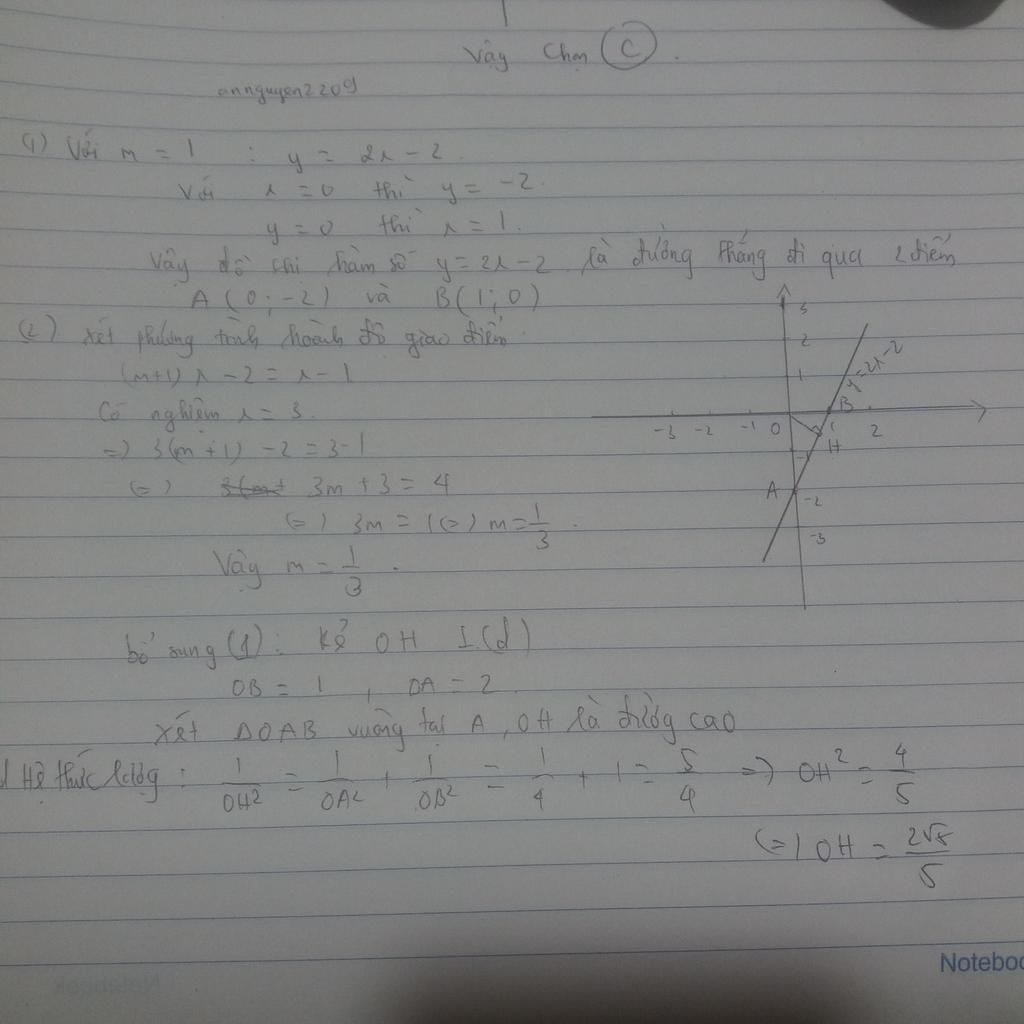 Vậy chọn C.
annguyen2209
1) Với m = 1 : y = 2x - 2.
Với x = 0 thì y = -2.
y = 0 thì x = 1.
Vậy đồ thi hàm số y = 2x - 2 là đường thẳng đi qua 2 điểm
A (0; -2) và B(1; 0)
(2) Xét phương trình hoành độ giao điểm.
(m+1) x - 2 = x - 1
Có nghiệm x = 3.
=) 3(m + 1) - 2 = 3-1
(=) 3m + 3 = 4
(=) 3m = 1 (=) m = 1/3.
Vậy m = 1/3.
3
2
1
y = 2x - 2
B
-3 -2 -1 0 1 2
H
-1
A -2
-3
bổ sung (1): Kẻ OH ⊥ (d)
OB = 1, OA = 2
Xét ΔOAB vuông tại A, OH là đường cao
Hệ thức lượng: 1/OH² = 1/OA² + 1/OB² = 1/4 + 1 = 5/4 => OH² = 4/5
(=) OH = 2√5/5
Notebook